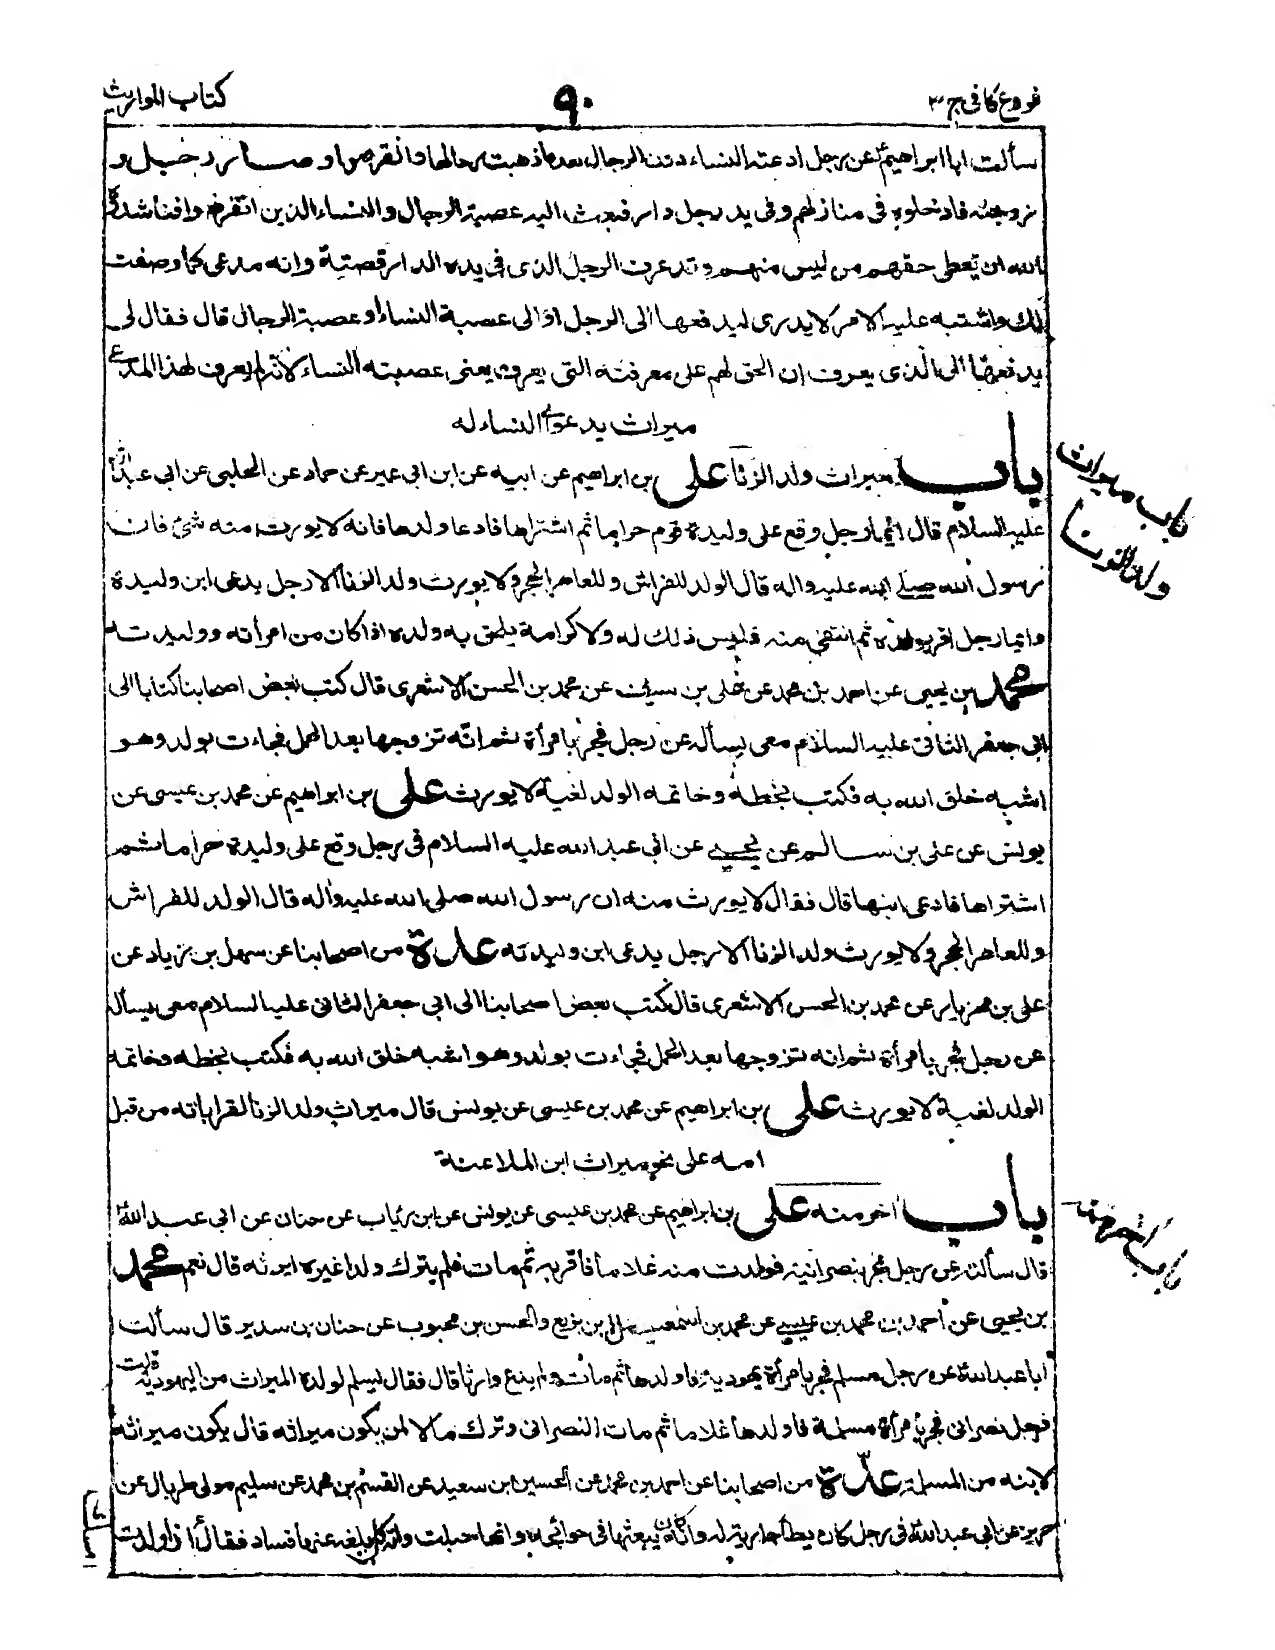 فروع کافی ج ۳
۹۰
کتاب المواریث
سألت ابا ابراهیم عن رجل ادعته النساء دون الرجال بعد ما ذهبت رجالها وانقرضوا وصار رجل و
زوجته فادخلوه فی منازلهم وفی ید رجل دار فبعث الیه عصبة الرجال والنساء الذین انقرض وافناشده
الله ان تعطی حقهم من لیس منهم وقد عرف الرجل الذی فی یده الدار قصته وانه مدعی کما وصفت
لک واشتبه علیه الامر لا یدری لیدفعها الی الرجل او الی عصبة النساء او عصبة الرجال قال فقال لی
یدفعها الی الذی یعرف ان الحق لهم علی معرفته التی یعرف یعنی عصبته النساء لانه لم یعرف لهذا المدعی
میراث یدعوی النساء له
باب میراث ولد الزنا علی بن ابراهیم عن ابیه عن ابن ابی عمیر عن حماد عن الحلبی عن ابی عبدالله
علیه السلام قال ایما رجل وقع علی ولیدة قوم حراما ثم اشتراها فادعا ولدها فانه لا یورث منه شیء فان
رسول الله صلی الله علیه واله قال الولد للفراش وللعاهر الحجر ولا یورث ولد الزنا الا رجل یدعی ابن ولیدة
وایما رجل اقر بولده ثم انتفی منه فلیس ذلک له ولا کرامة یلحق به ولده اذا کان من امرأته وولیدته
محمد بن یحیی عن احمد بن محمد عن علی بن سیف عن محمد بن الحسن الاشعری قال کتب بعض اصحابنا کتابا الی
ابی جعفر الثانی علیه السلام معی یسأله عن رجل فجر بامرأة ثم انه تزوجها بعد الحمل فجاءت بولد وهو
اشبه خلق الله به فکتب بخطه وخاتمه الولد لغیة لا یورث علی بن ابراهیم عن محمد بن عیسی عن
یونس عن علی بن سالم عن یحیی عن ابی عبد الله علیه السلام فی رجل وقع علی ولیدة حراما ثم
اشتراها فادعی ابنها قال فقال لا یورث منه ان رسول الله صلی الله علیه واله قال الولد للفراش
وللعاهر الحجر ولا یورث ولد الزنا الا رجل یدعی ابن ولیدته عدة من اصحابنا عن سهل بن زیاد عن
علی بن مهزیار عن محمد بن الحسن الاشعری قال کتب بعض اصحابنا الی ابی جعفر الثانی علیه السلام معی یسأله
عن رجل فجر بامرأة ثم انه تزوجها بعد الحمل فجاءت بولد وهو اشبه خلق الله به فکتب بخطه وخاتمه
الولد لغیة لا یورث علی بن ابراهیم عن محمد بن عیسی عن یونس قال میراث ولد الزنا لقراباته من قبل
امه علی نحو میراث ابن الملاعنة
باب اخر منه علی بن ابراهیم عن محمد بن عیسی عن یونس عن ابن رئاب عن حنان عن ابی عبد الله
قال سألته عن رجل فجر بنصرانیة فولدت منه غلاما فاقر به ثم مات فلم یترک ولدا غیره ایرثه قال نعم محمد
بن یحیی عن احمد بن محمد بن عیسی عن محمد بن اسمعیل بن بزیع والحسن بن محبوب عن حنان بن سدیر قال سألت
ابا عبد الله عن رجل مسلم فجر بامرأة یهودیة فاولدها ثم مات ولم یدع وارثا قال فقال یسلم لولده المیراث من الیهودیة قلت
فرجل نصرانی فجر بامرأة مسلمة فاولدها غلاما ثم مات النصرانی وترک مالا لمن یکون میراثه قال یکون میراثه
لابنه من المسلمة عدة من اصحابنا عن احمد بن محمد عن الحسین ابن سعید عن القسم بن محمد عن سلیم مولی طربال عن
حریز عن ابی عبد الله فی رجل کان یطأ جاریة له وانه کان یبعثها فی حوائجه وانها حبلت وانه بلغه عنها فساد فقال اذا ولدت
باب میراث
ولد الزنا
باب آخر منه